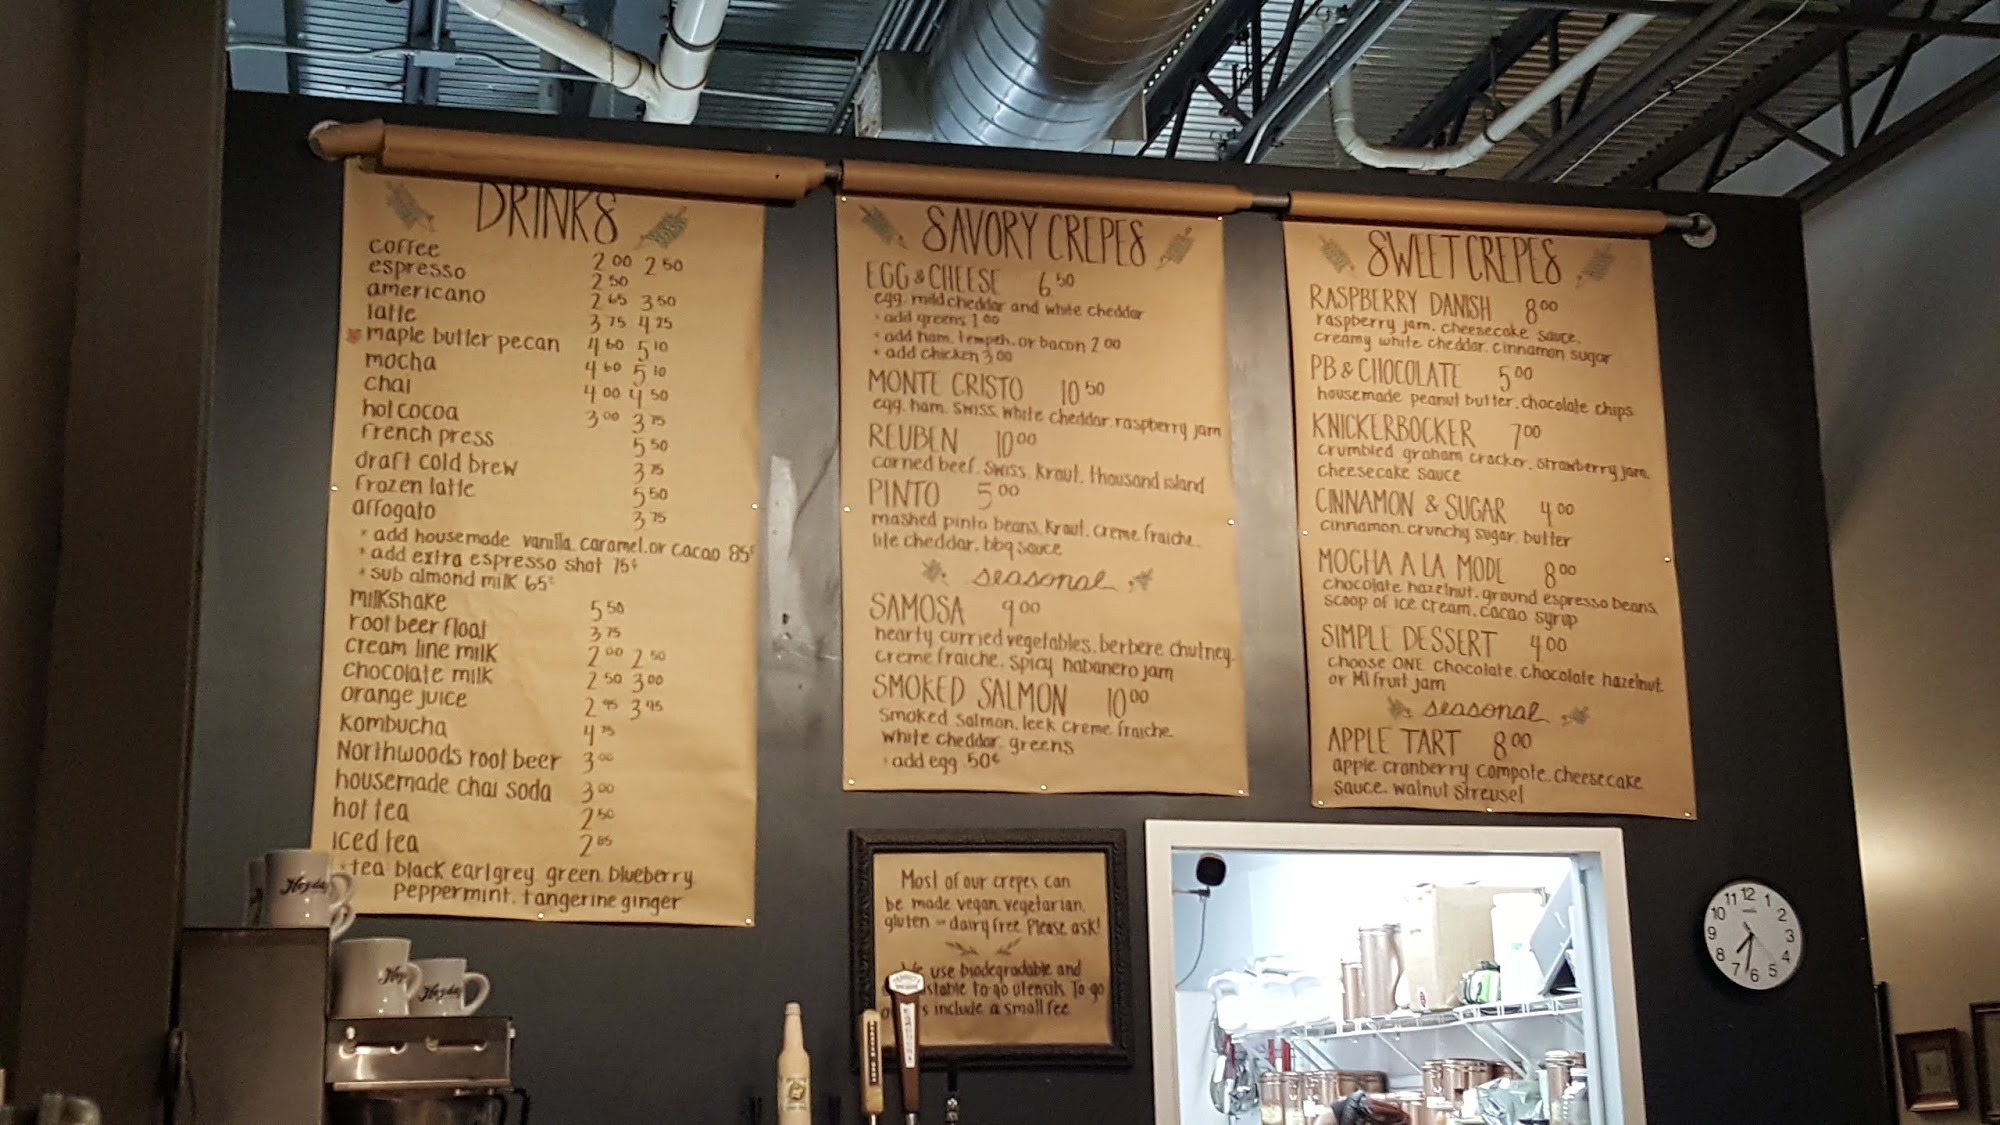 DRINKS
coffee 2.00 2.50
espresso 2.50
americano 2.65 3.50
latte 3.75 4.25
maple butter pecan 4.60 5.10
mocha 4.60 5.10
chai 4.00 4.50
hot cocoa 3.00 3.75
french press 5.50
draft cold brew 3.75
frozen latte 5.50
affogato 3.75
* add housemade vanilla, caramel, or cacao 85¢
* add extra espresso shot 75¢
* sub almond milk 65¢
milkshake 5.50
root beer float 3.75
cream line milk 2.00 2.50
chocolate milk 2.50 3.00
orange juice 2.95 3.45
kombucha 4.75
Northwoods root beer 3.00
housemade chai soda 3.00
hot tea 2.50
iced tea 2.85
* tea: black, earl grey, green, blueberry,
peppermint, tangerine ginger
SAVORY CREPES
EGG & CHEESE 6.50
egg, mild cheddar and white cheddar
* add greens 1.00
* add ham, tempeh, or bacon 2.00
* add chicken 3.00
MONTE CRISTO 10.50
egg, ham, swiss, white cheddar, raspberry jam
REUBEN 10.00
corned beef, swiss, kraut, thousand island
PINTO 5.00
mashed pinto beans, kraut, creme fraiche,
lite cheddar, bbq sauce
seasonal
SAMOSA 9.00
hearty curried vegetables, berbere chutney,
creme fraiche, spicy habanero jam
SMOKED SALMON 10.00
smoked salmon, leek creme fraiche,
white cheddar, greens
* add egg .50¢
SWEET CREPES
RASPBERRY DANISH 8.00
raspberry jam, cheesecake sauce,
creamy white cheddar, cinnamon sugar
PB & CHOCOLATE 5.00
housemade peanut butter, chocolate chips
KNICKERBOCKER 7.00
crumbled graham cracker, strawberry jam,
cheesecake sauce
CINNAMON & SUGAR 4.00
cinnamon, crunchy sugar, butter
MOCHA A LA MODE 8.00
chocolate hazelnut, ground espresso beans,
scoop of ice cream, cacao syrup
SIMPLE DESSERT 4.00
choose ONE chocolate, chocolate hazelnut,
or MI fruit jam
seasonal
APPLE TART 8.00
apple cranberry compote, cheesecake
sauce, walnut streusel
Most of our crepes can
be made vegan, vegetarian,
gluten or dairy free. Please ask!
use biodegradable and
to go utensils. To go
include a small fee.
12 1 2 3 4 5 6 7 8 9 10 11